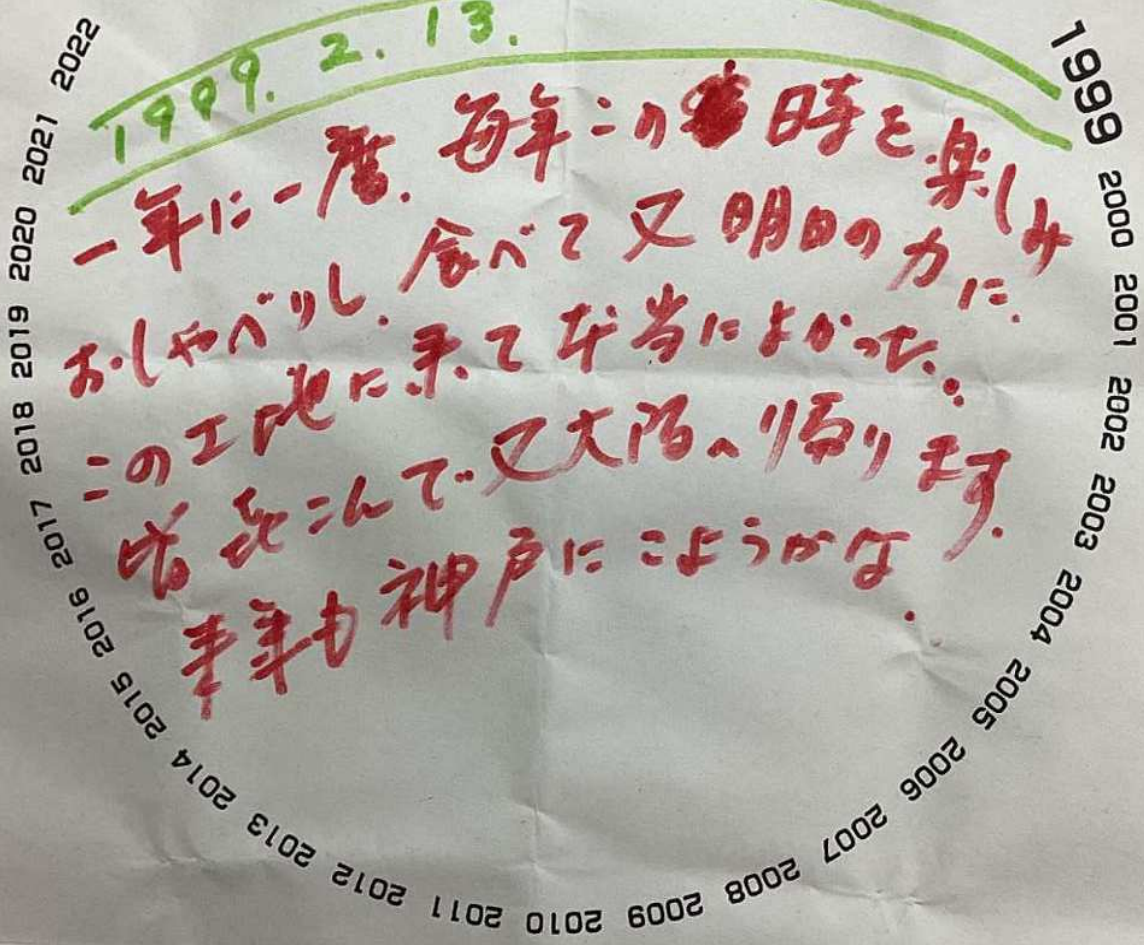 1999. 2. 13.
一年に一度. 毎年この 日時を楽しみ
おしゃべりし. 食べて又 明日の力に.
この土地に来て本当によかった.
喜こんで又大阪へ帰ります.
来年も神戸にこようかな.
1999 2000 2001 2002 2003 2004 2005 2006 2007 2008 2009 2010 2011 2012 2013 2014 2015 2016 2017 2018 2019 2020 2021 2022